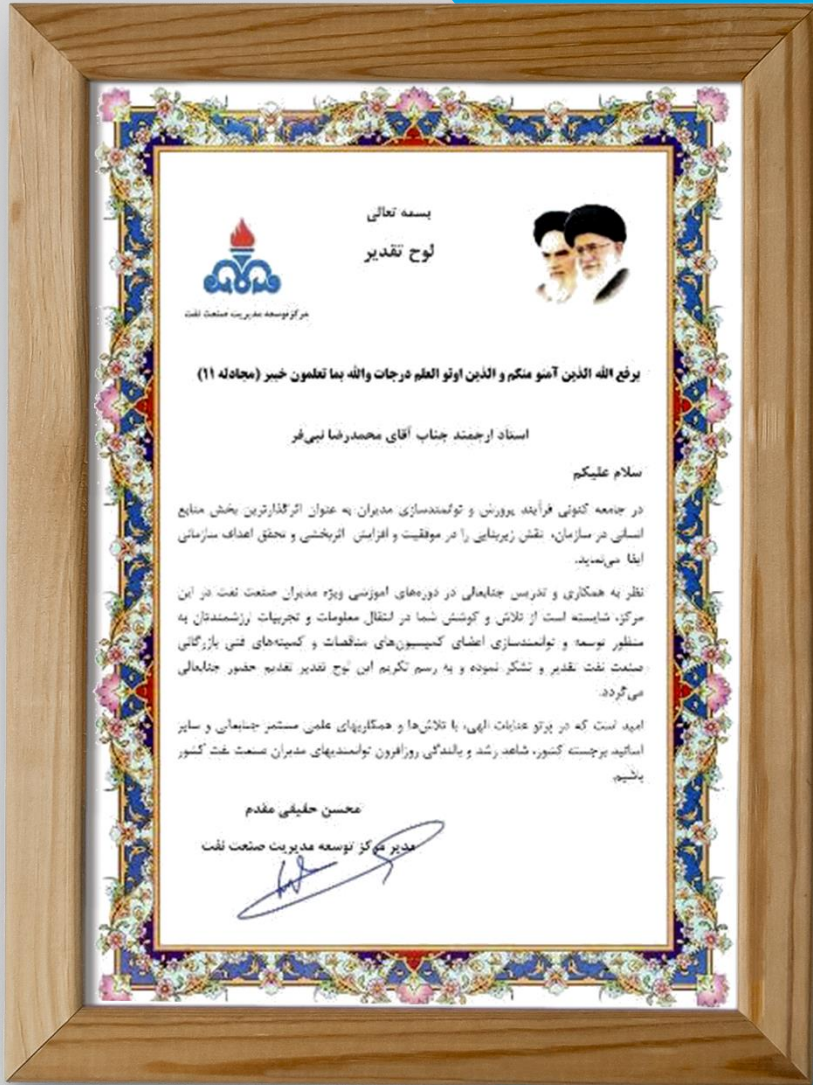 بسمه تعالی
لوح تقدیر
مرکز توسعه مدیریت صنعت نفت
یرفع الله الذین آمنو منکم و الذین اوتو العلم درجات والله بما تعلمون خبیر (مجادله ۱۱)
استاد ارجمند جناب آقای محمدرضا نبی‌فر
سلام علیکم
در جامعه کنونی فرآیند پرورش و توانمندسازی مدیران به عنوان اثرگذارترین بخش منابع
انسانی در سازمان، نقش زیربنایی را در موفقیت و افزایش اثربخشی و تحقق اهداف سازمانی
ایفا می‌نماید.
نظر به همکاری و تدریس جنابعالی در دوره‌های آموزشی ویژه مدیران صنعت نفت در این
مرکز، شایسته است از تلاش و کوشش شما در انتقال معلومات و تجربیات ارزشمندتان به
منظور توسعه و توانمندسازی اعضای کمیسیون‌های مناقصات و کمیته‌های فنی بازرگانی
صنعت نفت تقدیر و تشکر نموده و به رسم تکریم این لوح تقدیر تقدیم حضور جنابعالی
می‌گردد.
امید است که در پرتو عنایات الهی، با تلاش‌ها و همکاریهای علمی مستمر جنابعالی و سایر
اساتید برجسته کشور، شاهد رشد و بالندگی روزافزون توانمندیهای مدیران صنعت نفت کشور
باشیم.
محسن حقیقی مقدم
مدیر مرکز توسعه مدیریت صنعت نفت